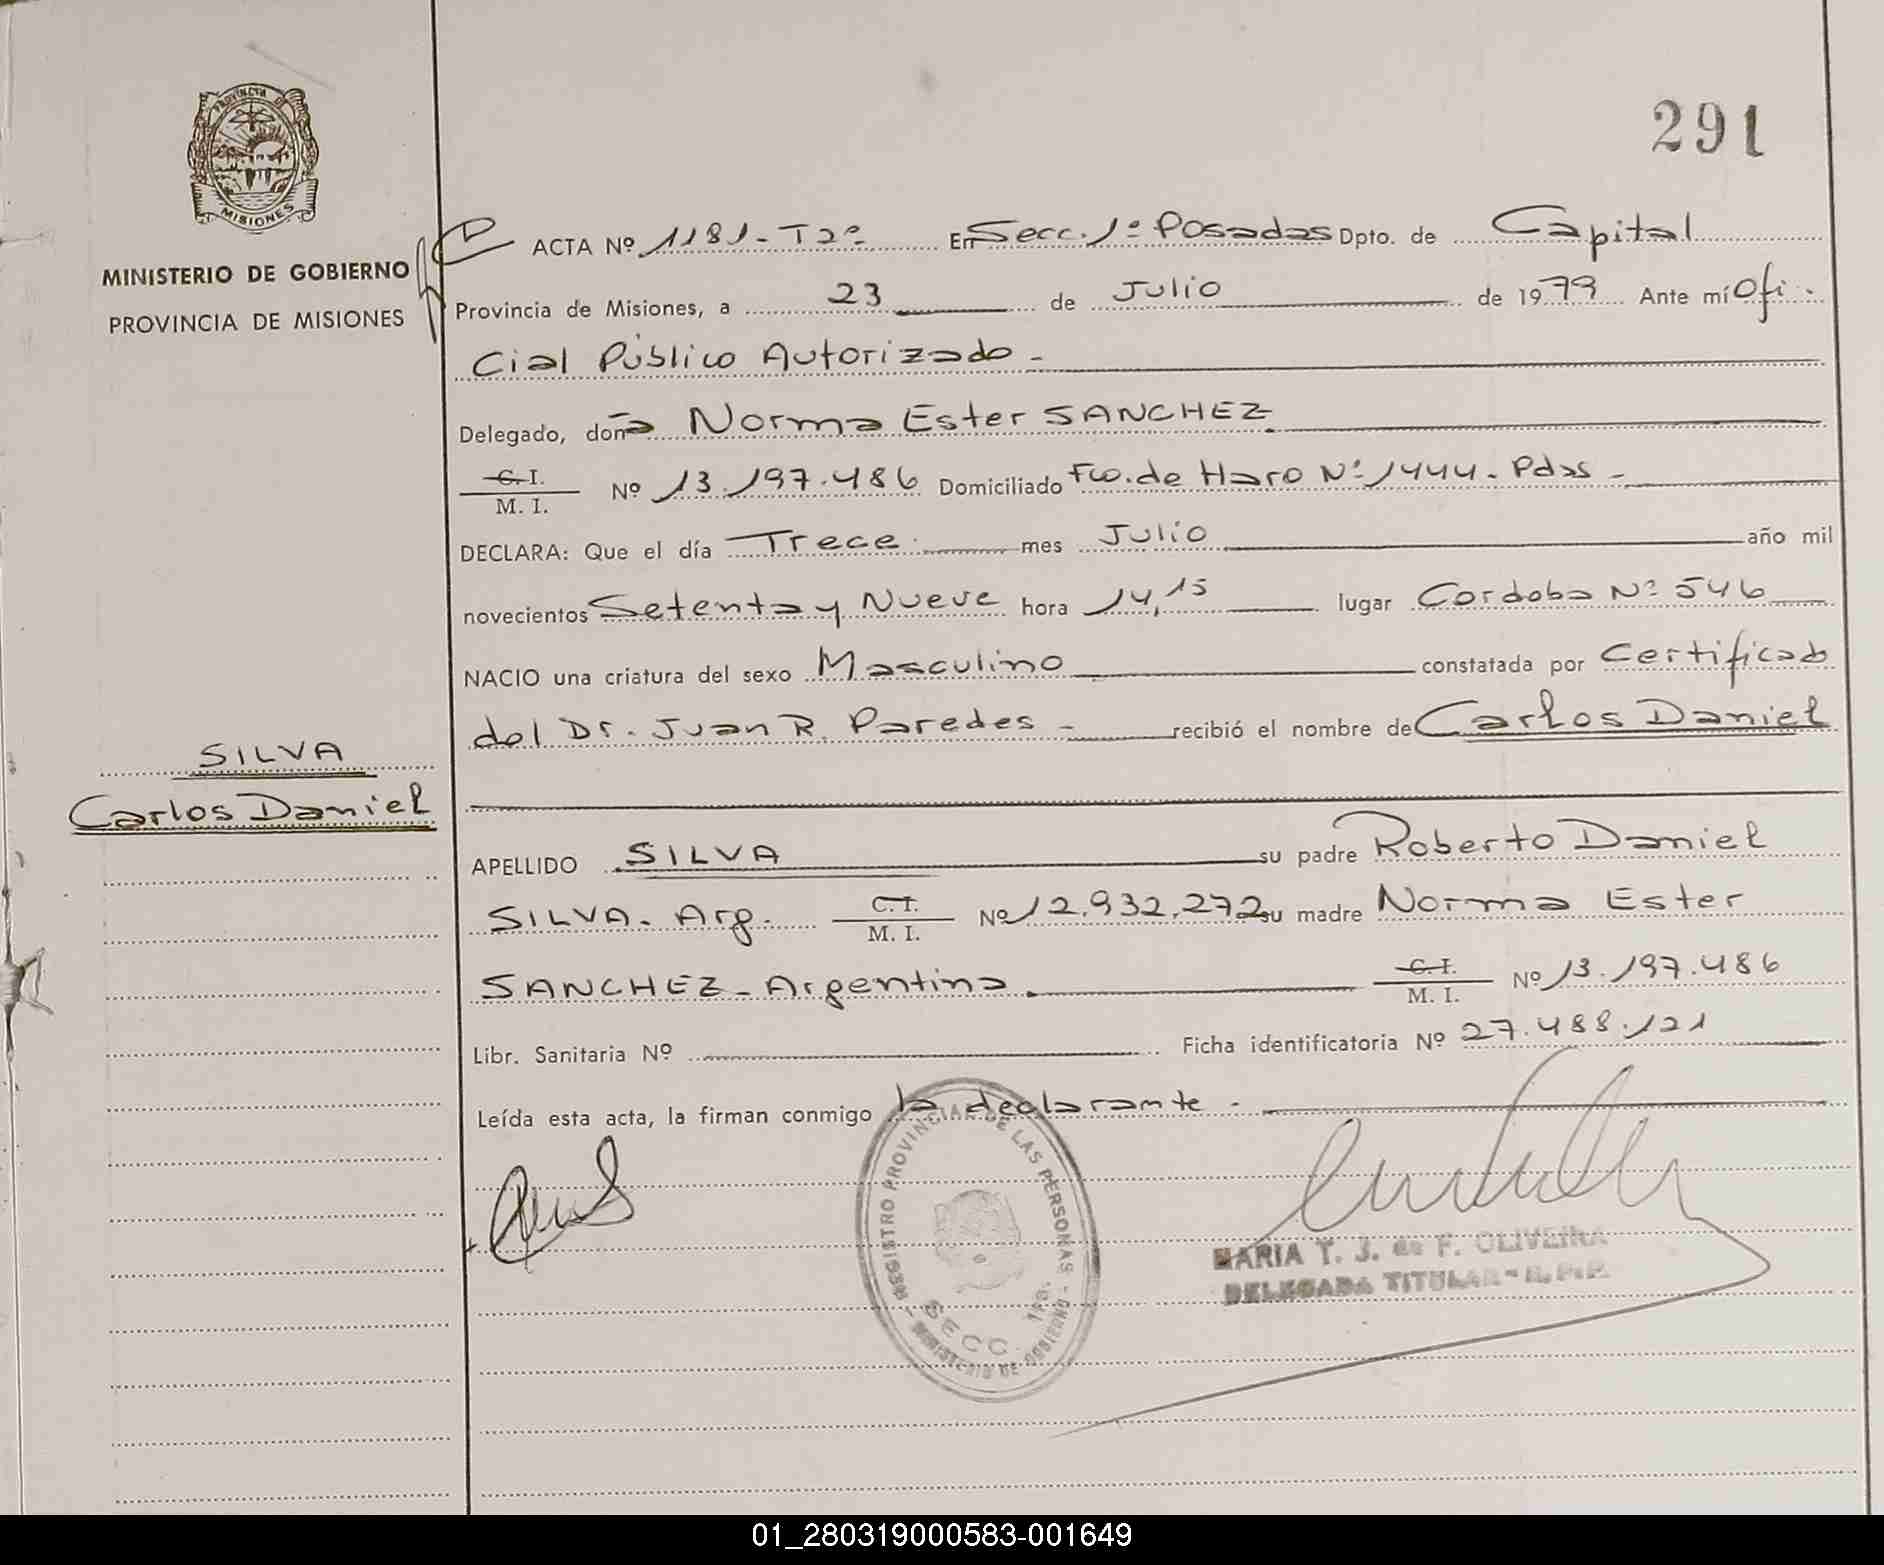 291
PROVINCIA DE
MISIONES
MINISTERIO DE GOBIERNO
PROVINCIA DE MISIONES
ACTA Nº 1181 - T2º En Secc. 1º Posadas Dpto. de Capital
Provincia de Misiones, a 23 de Julio de 1979 Ante mí Ofi-
cial Público Autorizado -
Delegado, doña Norma Ester SANCHEZ
C. I. / M. I. Nº 13.197.486 Domiciliado Fco. de Haro Nº 1444 - Pdas -
DECLARA: Que el día Trece mes Julio año mil
novecientos Setenta y Nueve hora 14,15 lugar Cordoba Nº 546
NACIO una criatura del sexo Masculino constatada por Certificado
del Dr. Juan R. Paredes - recibió el nombre de Carlos Daniel
SILVA
Carlos Daniel
APELLIDO SILVA su padre Roberto Daniel
SILVA - Arg. C. I. / M. I. Nº 12.932.272 su madre Norma Ester
SANCHEZ - Argentina C. I. / M. I. Nº 13.197.486
Libr. Sanitaria Nº Ficha identificatoria Nº 27.488.121
Leída esta acta, la firman conmigo la declarante -
REGISTRO PROVINCIAL DE LAS PERSONAS - MINISTERIO DE GOBIERNO -
SECC. 1ra.
MARIA T. J. de F. OLIVEIRA
DELEGADA TITULAR - R. P. P.
01_280319000583-001649